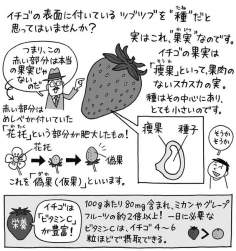 イチゴの表面に付いている“ツブツブ”を“種”だと
思ってはいませんか？
実はこれ、“果実”なのです。
つまり、この
赤い部分は本当
の果実じゃ
ないのだ
イチゴの果実は
「痩果」といって、果肉の
ないスカスカの実。
種はその中心にあり、
とても小さいのです。
赤い部分は
めしべが付いていた
「花托」という部分が肥大したもの！
花托
花托
偽果
これを「偽果（仮果）」といいます。
痩果
種子
そうか
そうか
栄養
イチゴは
「ビタミンC」
が豊富！
100gあたり80mg含まれ、ミカンやグレープ
フルーツの約2倍以上！一日に必要な
ビタミンCは、イチゴ4〜6
粒ほどで摂取できる。